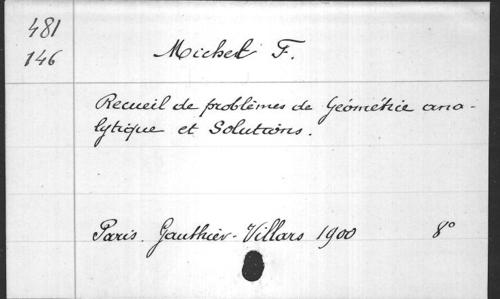 481
146
Michel F.
Recueil de problèmes de Géométrie ana-
lytique et Solutions.
Paris. Gauthier-Villars 1900 8°